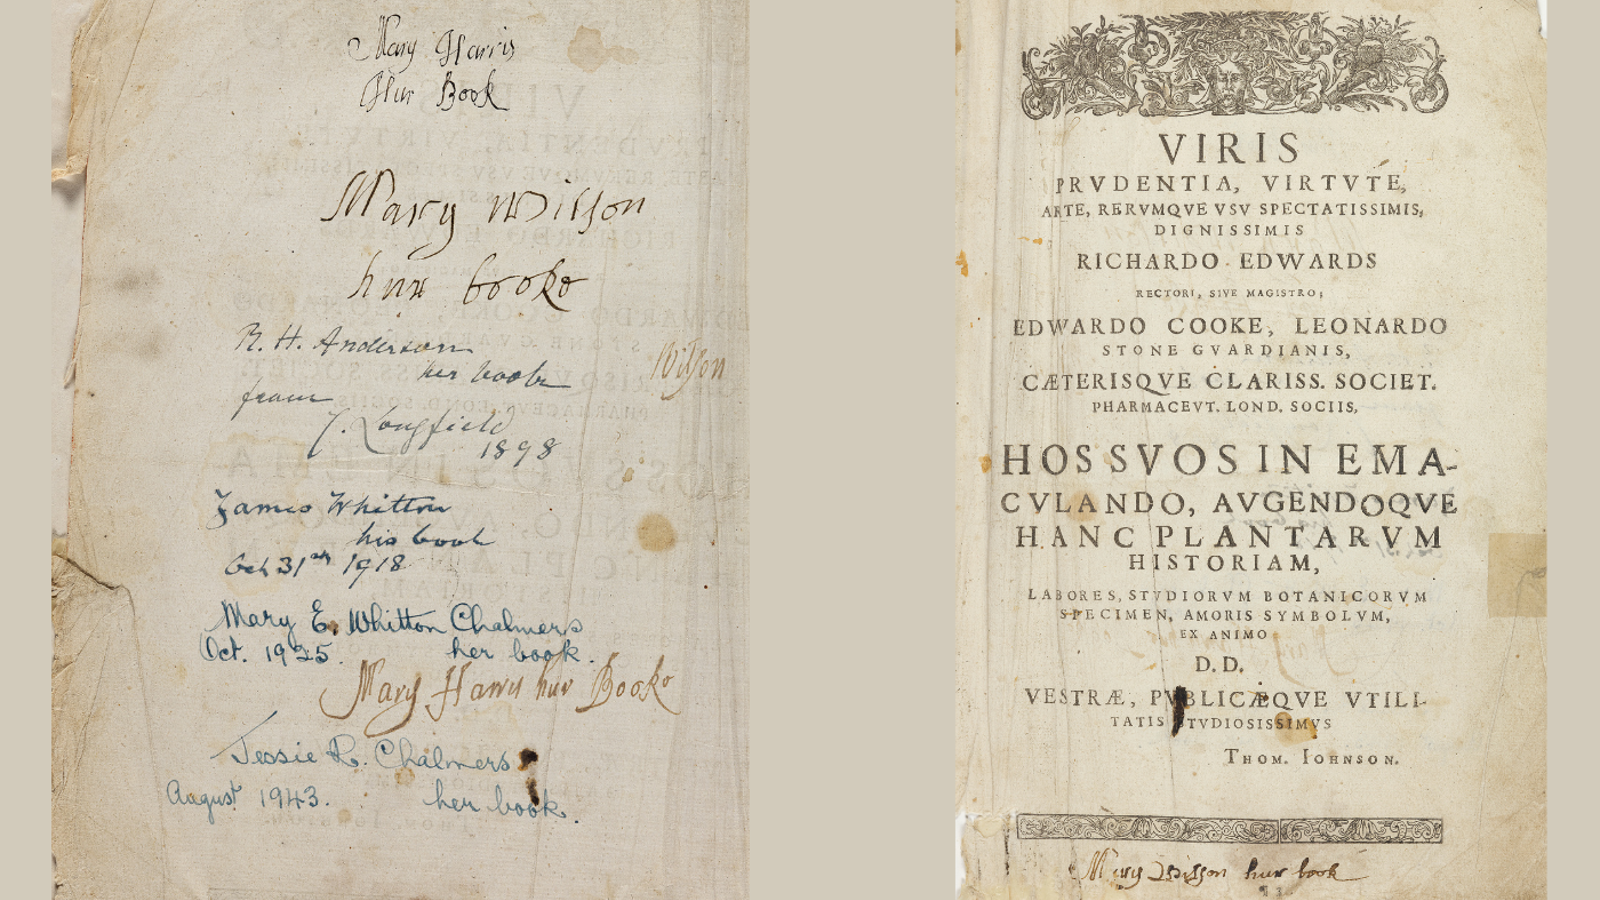 Mary Harris
Hur Book
Mary Wilson
hur booke
R. H. Anderson
her book
Wilson
from
J. Longfield
1898
James Whitton
his book
Oct 31st 1918
Mary E. Whitton Chalmers
Oct. 1925. her book.
Mary Harris hur Booke
Jessie R. Chalmers
August 1943. her book.
VIRIS
PRVDENTIA, VIRTVTE,
ARTE, RERVMQVE VSV SPECTATISSIMIS,
DIGNISSIMIS
RICHARDO EDWARDS
RECTORI, SIVE MAGISTRO;
EDWARDO COOKE, LEONARDO
STONE GVARDIANIS,
CÆTERISQVE CLARISS. SOCIET.
PHARMACEVT. LOND. SOCIIS,
HOS SVOS IN EMA-
CVLANDO, AVGENDOQVE
HANC PLANTARVM
HISTORIAM,
LABORES, STVDIORVM BOTANICORVM
SPECIMEN, AMORIS SYMBOLVM,
EX ANIMO
D. D.
VESTRÆ, PVBLICÆQVE VTILI-
TATIS STVDIOSISSIMVS
THOM. IOHNSON.
Mary Wilson hur book